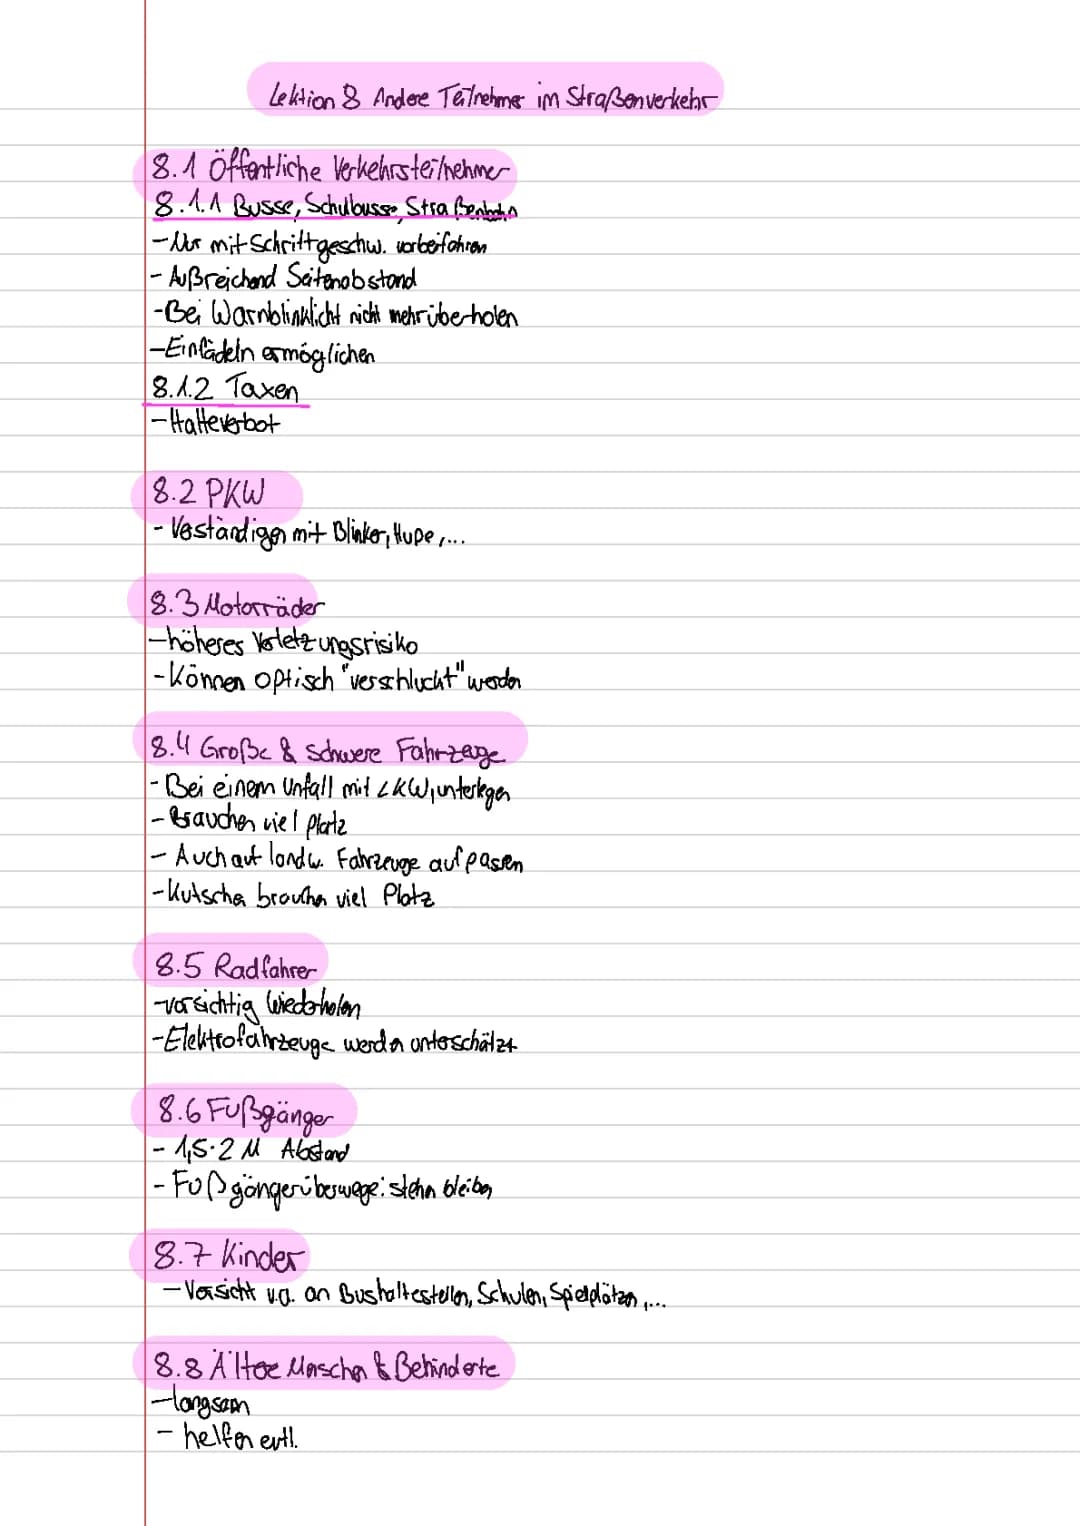 Lektion 8 Andere Teilnehmer im Straßenverkehr
8.1 Öffentliche Verkehrsteilnehmer
8.1.1 Busse, Schulbusse, Straßenbahn
-Nur mit Schrittgeschw. vorbeifahren
- Außreichend Seitenabstand
-Bei Warnblinklicht nicht mehr überholen
-Einfädeln ermöglichen
8.1.2 Taxen
-Halteverbot
8.2 PKW
- Verständigen mit Blinker, Hupe,...
8.3 Motorräder
-höheres Verletzungsrisiko
-Können optisch "verschluckt" werden
8.4 Große & schwere Fahrzeuge
- Bei einem Unfall mit LKW, unterlegen
- Brauchen viel Platz
- Auch auf landw. Fahrzeuge aufpassen
-Kutschen brauchen viel Platz
8.5 Radfahrer
-vorsichtig wiederholen
-Elektrofahrzeuge werden unterschätzt
8.6 Fußgänger
- 1,5-2 M Abstand
- Fußgängerüberwege: stehn bleiben
8.7 Kinder
-Vorsicht v.a. an Bushaltestellen, Schulen, Spielplätzen,...
8.8 Ältere Menschen & Behinderte
-langsam
- helfen evtl.